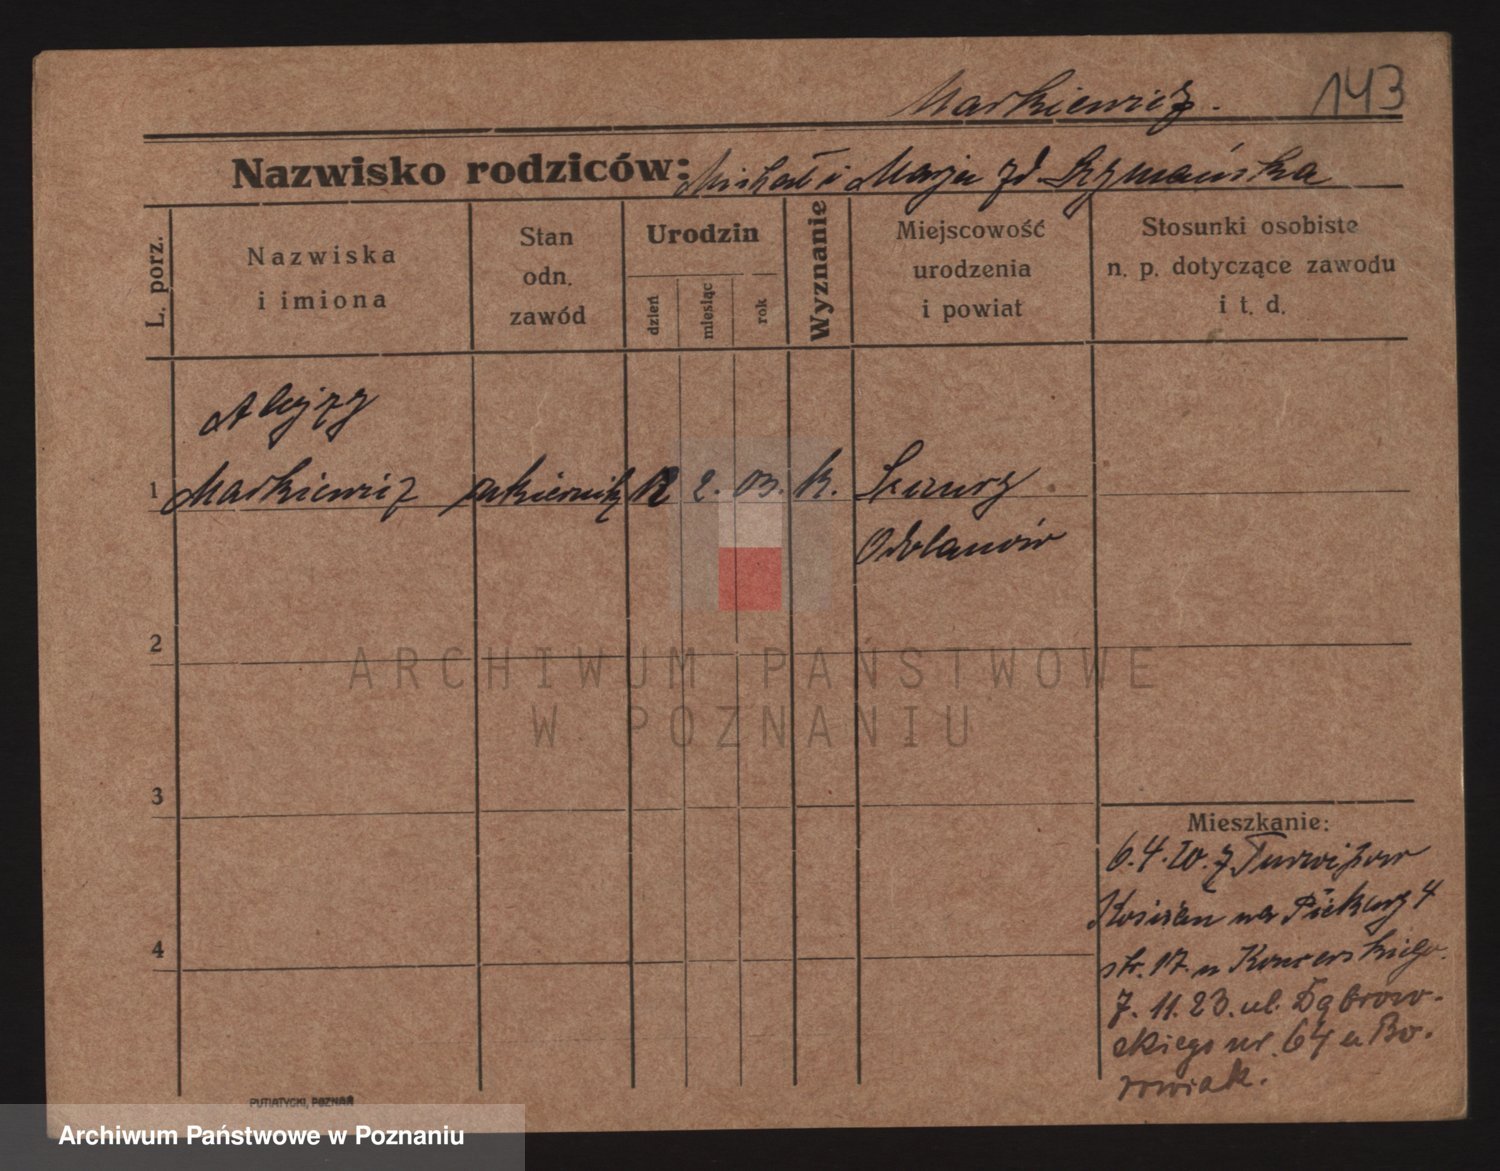 Markiewicz.
143
Nazwisko rodziców: Michał i Marja zd Szymańska
L. porz.
Nazwiska
i imiona
Stan
odn.
zawód
Urodzin
dzień
miesiąc
rok
Wyznanie
Miejscowość
urodzenia
i powiat
Stosunki osobiste
n. p. dotyczące zawodu
i t. d.
Alojzy
1 Markiewicz cukiernik 12 2. 03. k.
Odolanów
2
3
4
Mieszkanie:
6. 4. 20. z
Kościan na Piekary 4
str. 17. u
7. 11. 23. ul. Dąbrow-
skiego nr. 64 u Bo-
rowiak.
PUTIATYCKI, POZNAŃ
ARCHIWUM PAŃSTWOWE
W POZNANIU
Archiwum Państwowe w Poznaniu